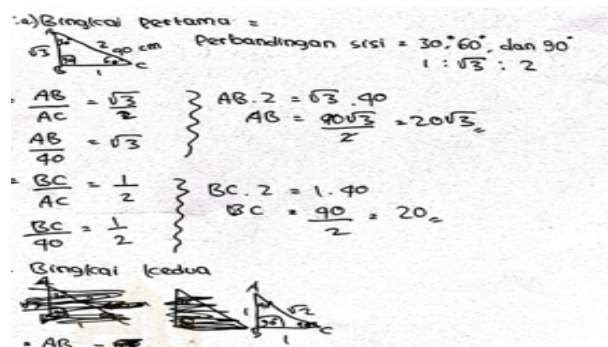 :a) Bingkai Pertama =
A
√3 2 40 cm
B 1 C
Perbandingan sisi = 30°, 60°, dan 90°
1 : √3 : 2
= AB/AC = √3/2
AB/40 = √3
AB . 2 = √3 . 40
AB = 40√3/2 = 20√3
= BC/AC = 1/2
BC/40 = 1/2
BC . 2 = 1 . 40
BC = 40/2 = 20
. Bingkai kedua
A
1 √2
B 1 C
= AB =